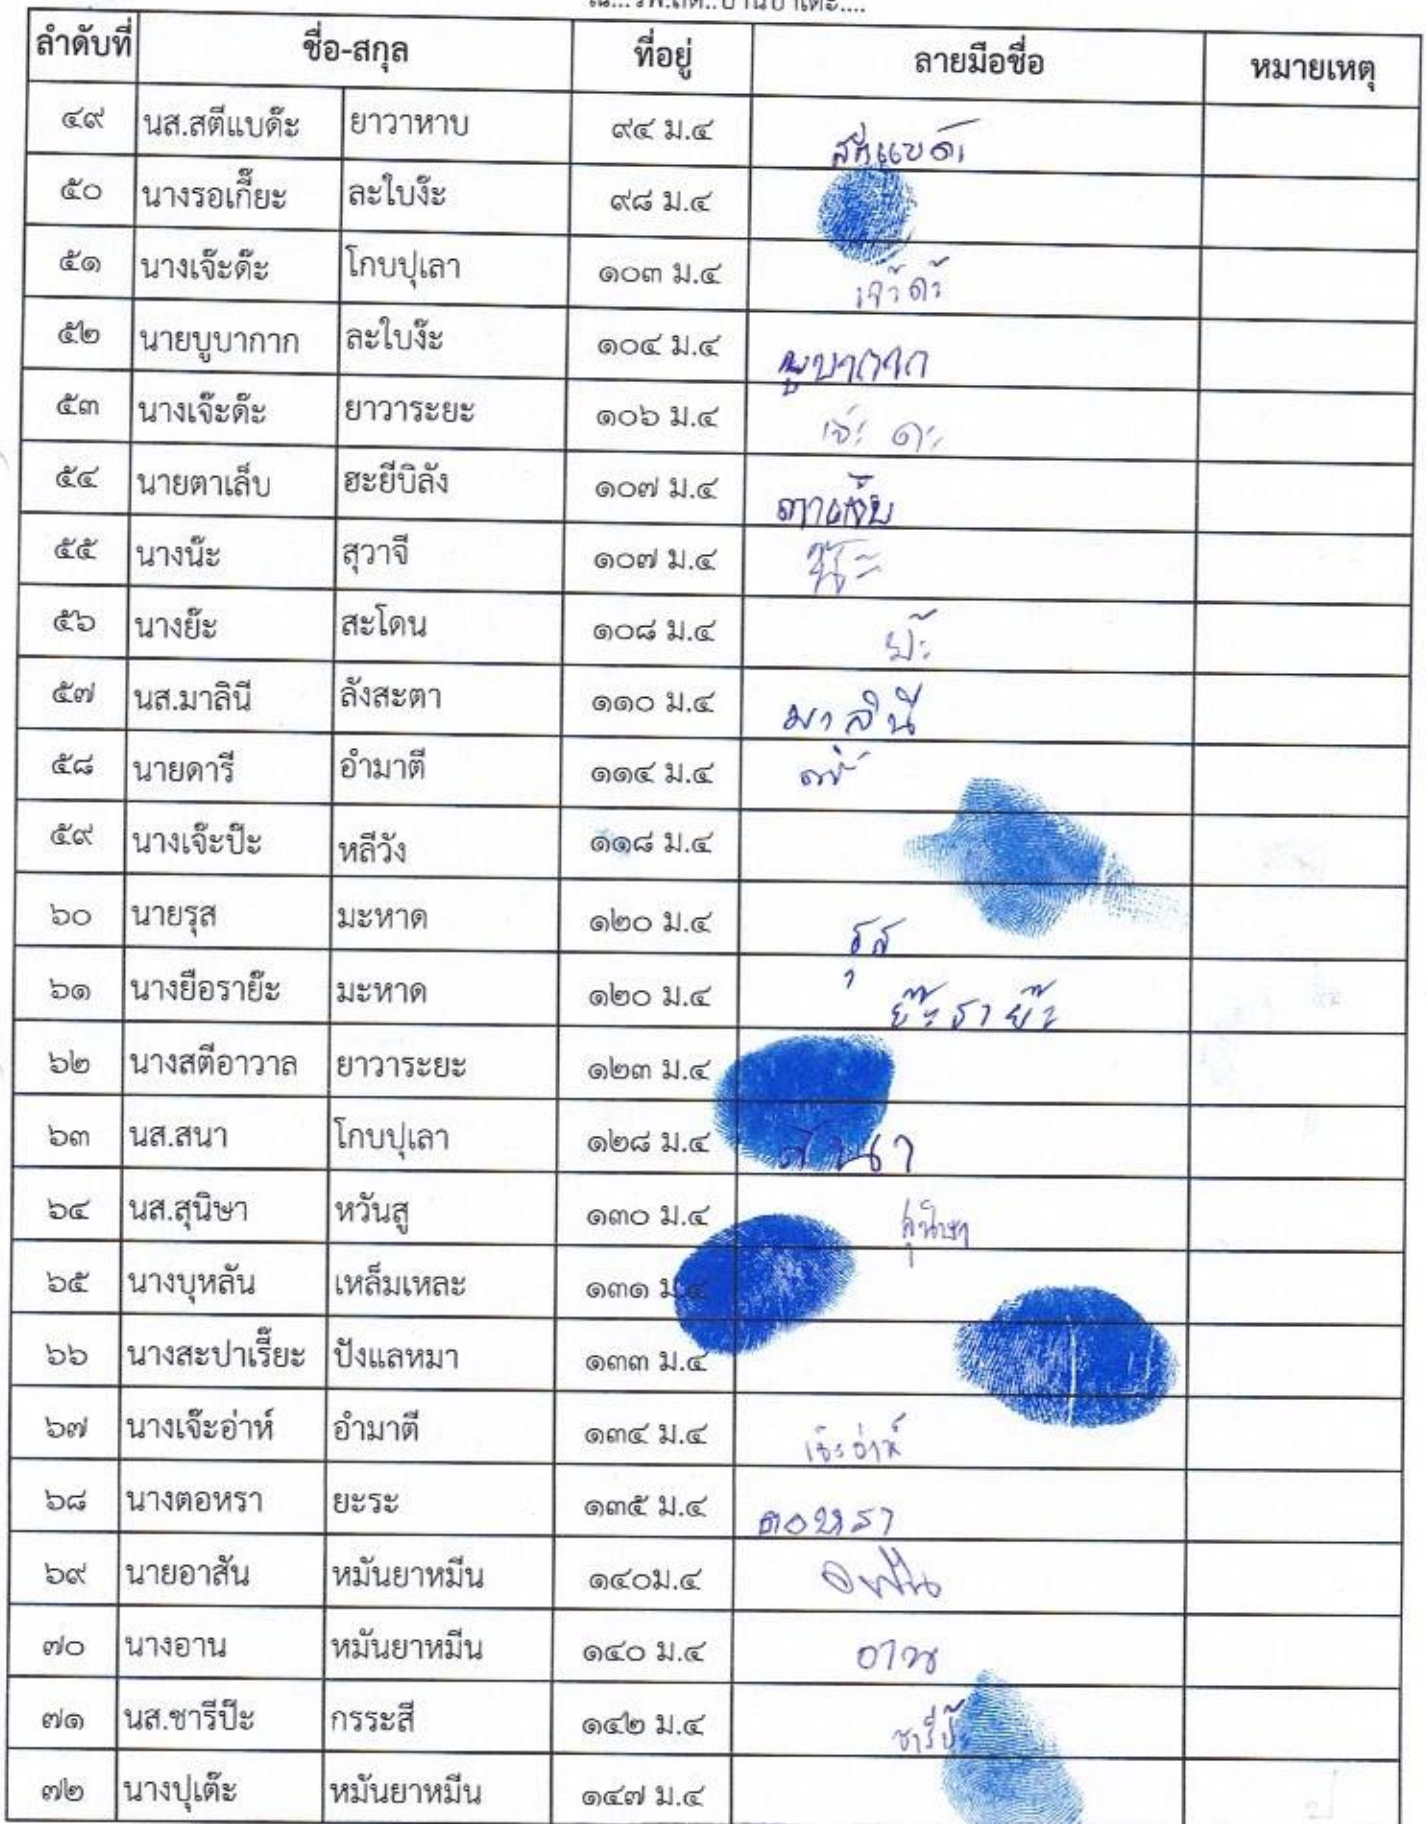 ลำดับที่ ชื่อ-สกุล ที่อยู่ ลายมือชื่อ หมายเหตุ
๔๙ นส.สตีแบด๊ะ ยาวาหาบ ๙๔ ม.๔
๕๐ นางรอเกี๊ยะ ละใบง๊ะ ๙๘ ม.๔
๕๑ นางเจ๊ะด๊ะ โกบปุเลา ๑๐๓ ม.๔
๕๒ นายบูบากาก ละใบง๊ะ ๑๐๔ ม.๔ บูบากาก
๕๓ นางเจ๊ะด๊ะ ยาวาระยะ ๑๐๖ ม.๔
๕๔ นายตาเล็บ ฮะยีบิลัง ๑๐๗ ม.๔
๕๕ นางน๊ะ สุวาจี ๑๐๗ ม.๔
๕๖ นางย๊ะ สะโดน ๑๐๘ ม.๔
๕๗ นส.มาลินี ลังสะตา ๑๑๐ ม.๔ มาลินี
๕๘ นายดารี อำมาตี ๑๑๔ ม.๔
๕๙ นางเจ๊ะป๊ะ หลีวัง ๑๑๘ ม.๔
๖๐ นายรุส มะหาด ๑๒๐ ม.๔ รุส
๖๑ นางยือราย๊ะ มะหาด ๑๒๐ ม.๔
๖๒ นางสตีอาวาล ยาวาระยะ ๑๒๓ ม.๔
๖๓ นส.สนา โกบปุเลา ๑๒๘ ม.๔
๖๔ นส.สุนิษา หวันสู ๑๓๐ ม.๔ สุนิษา
๖๕ นางบุหลัน เหล็มเหละ ๑๓๑ ม.๔
๖๖ นางสะปาเรี๊ยะ ปังแลหมา ๑๓๓ ม.๔
๖๗ นางเจ๊ะอ่าห์ อำมาตี ๑๓๔ ม.๔ เจ๊ะอ่าห์
๖๘ นางตอหรา ยะระ ๑๓๕ ม.๔ ตอหรา
๖๙ นายอาสัน หมันยาหมีน ๑๔๐ม.๔
๗๐ นางอาน หมันยาหมีน ๑๔๐ ม.๔ อาน
๗๑ นส.ชารีป๊ะ กรระสี ๑๔๒ ม.๔ ชารีป๊ะ
๗๒ นางปุเต๊ะ หมันยาหมีน ๑๔๗ ม.๔